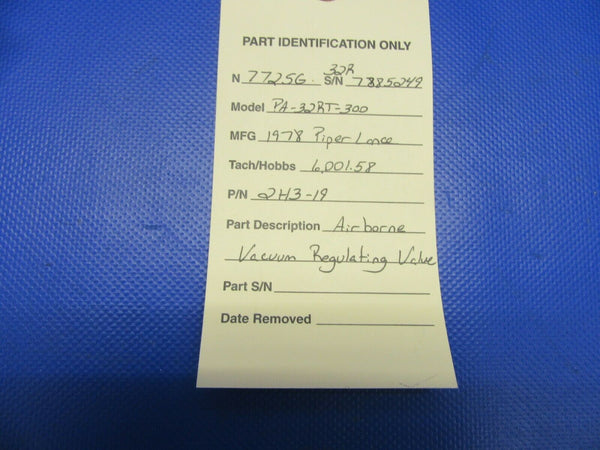 PART IDENTIFICATION ONLY
N 7725G. S/N 32R 7885249
Model PA-32RT-300
MFG 1978 Piper Lance
Tach/Hobbs 6,001.58
P/N 2H3-19
Part Description Airborne
Vacuum Regulating Valve
Part S/N
Date Removed